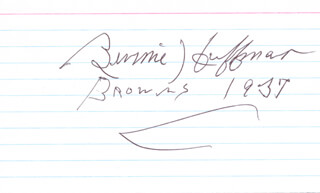 Bennie Huffman
Browns 1937